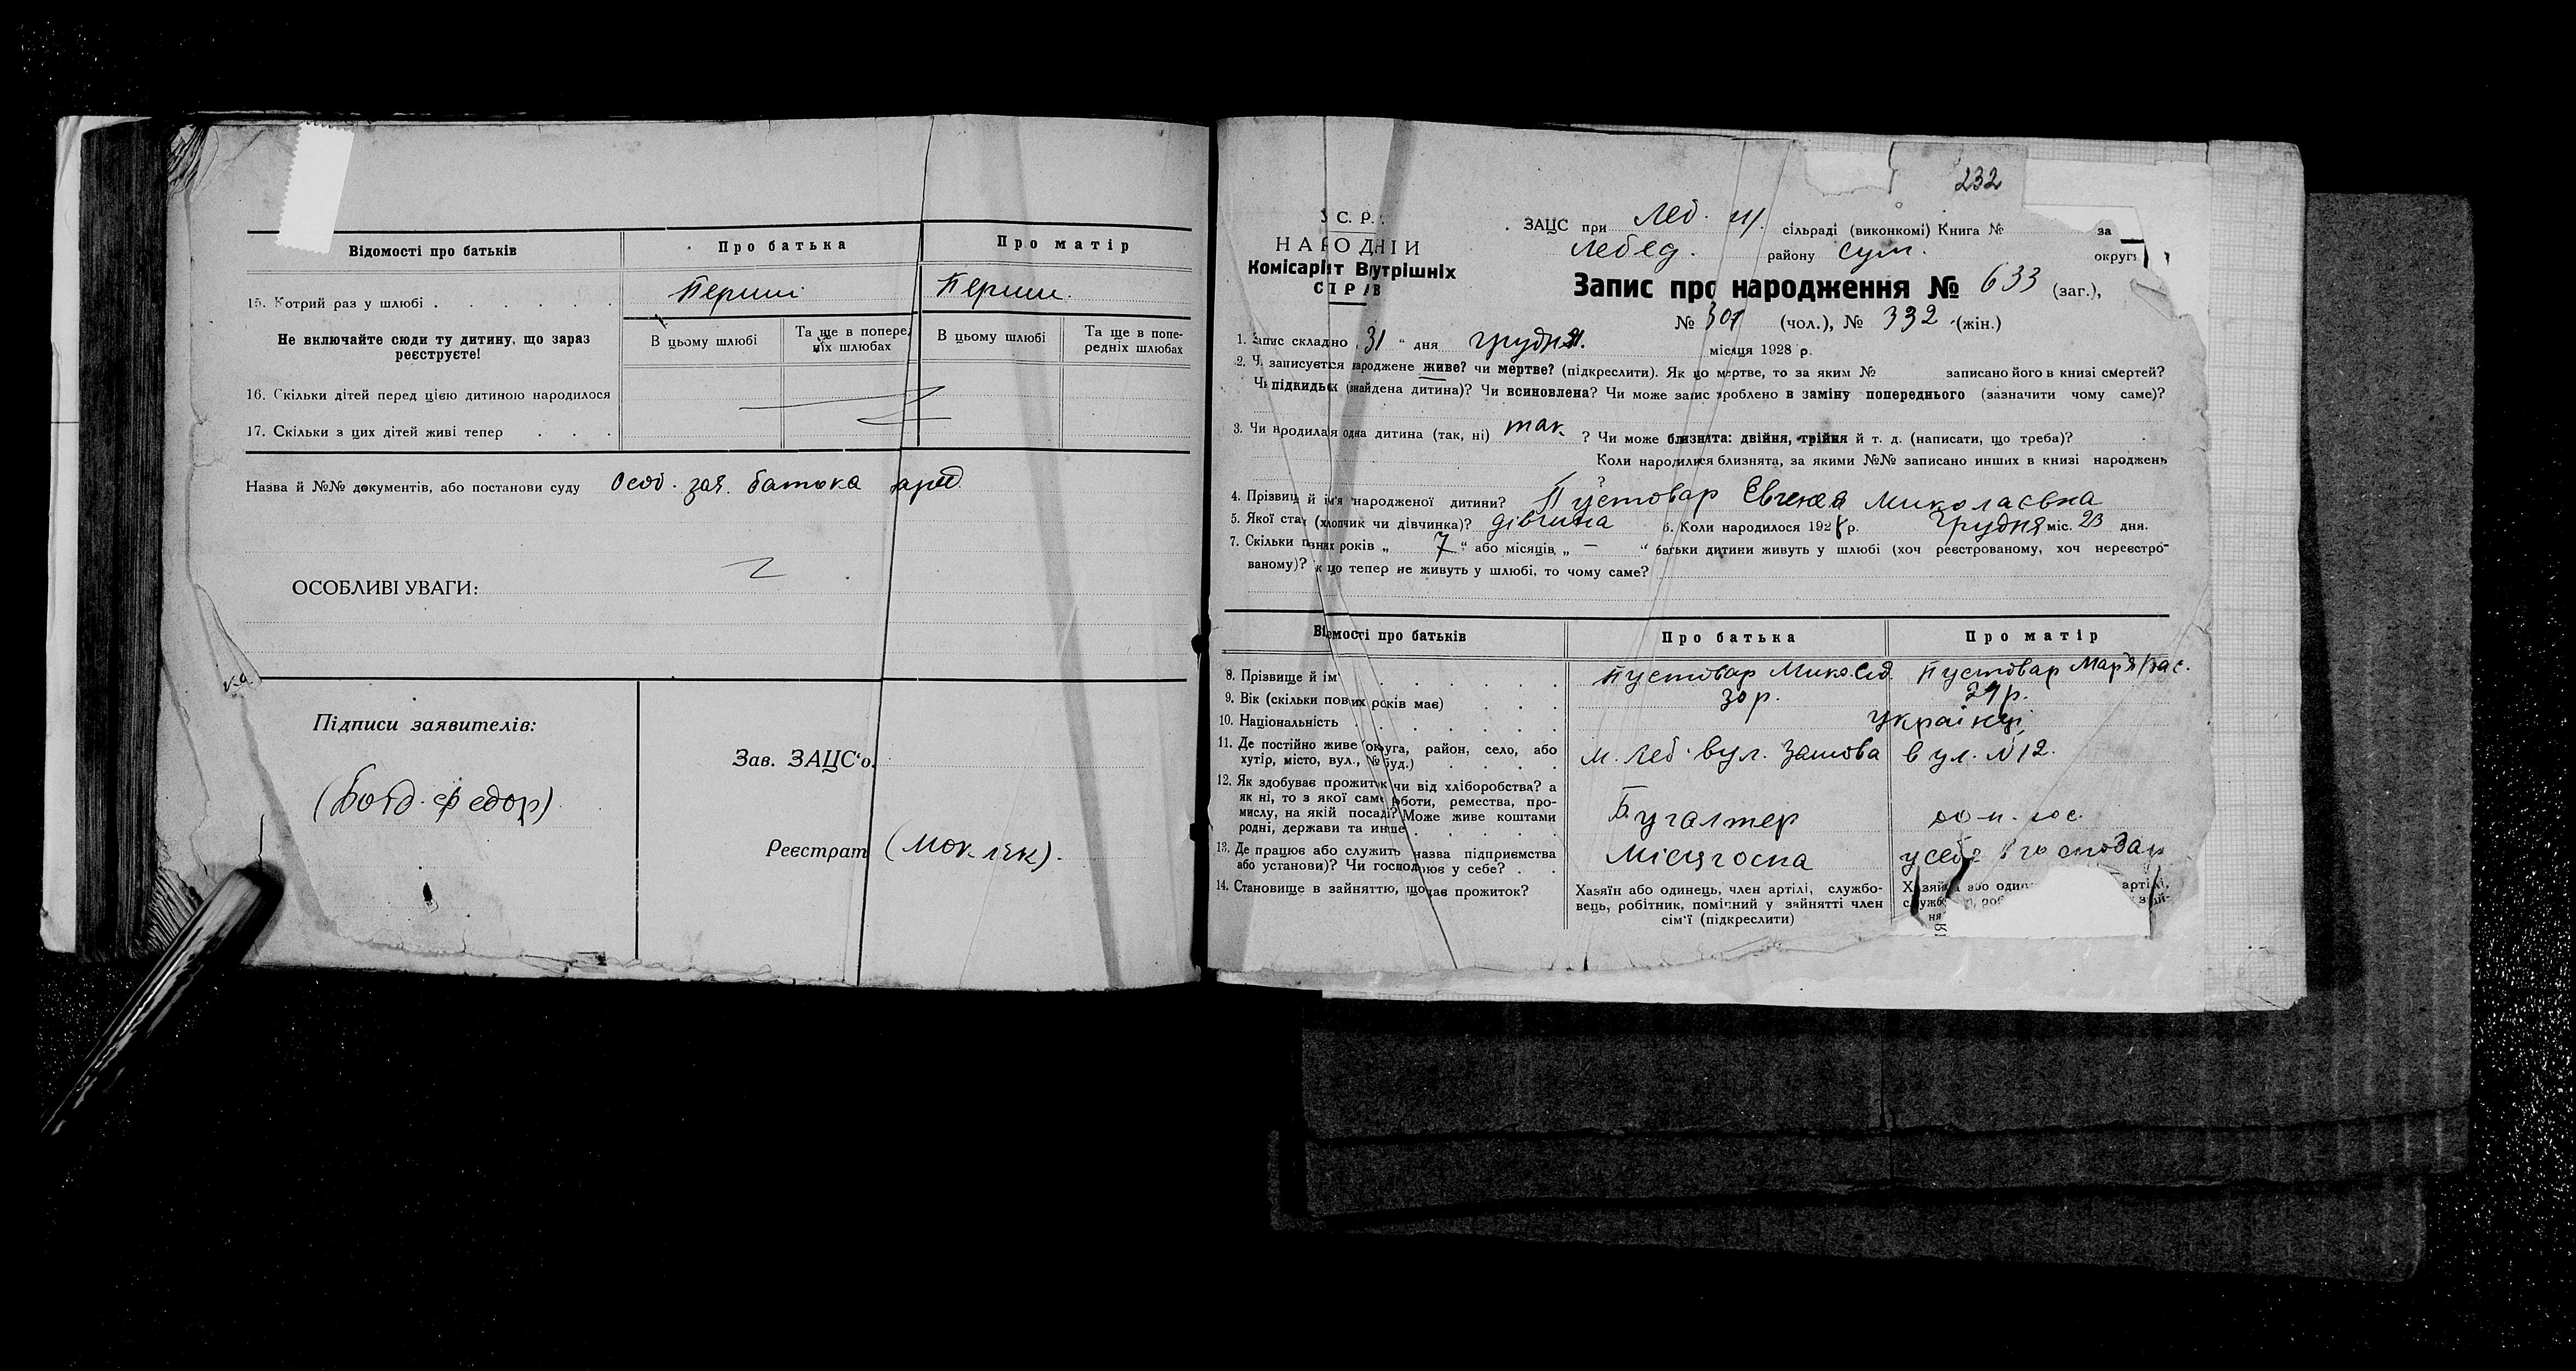 Відомості про батьків
Про батька
Про матір
15. Котрий раз у шлюбі
Перший
Перший
Не включайте сюди ту дитину, що зараз
реєструєте!
В цьому шлюбі
Та ще в попередніх шлюбах
В цьому шлюбі
Та ще в попередніх шлюбах
16. Скільки дітей перед цією дитиною народилося
17. Скільки з цих дітей живі тепер
Назва й №№ документів, або постанови суду Особ. зая. батька
ОСОБЛИВІ УВАГИ:
Підписи заявителів:
Зав. ЗАЦС'о.
Реєстрат
232
У.С.Р.Р.
НАРОДНІЙ
Комісаріят Внутрішніх
СПРАВ
ЗАЦС при Леб. сільраді (виконкомі) Книга № за
Лебед. району Сум. округи
Запис про народження № 633 (заг.),
№ 301 (чол.), № 332 (жін.)
1. Запис складно „31“ дня грудня. місяця 1928 р.
2. Чи записується народжене живе? чи мертве? (підкреслити). Як що мертве, то за яким № записано його в книзі смертей?
Чи підкидьок (знайдена дитина)? Чи всиновлена? Чи може запис зроблено в заміну попереднього (зазначити чому саме)?
3. Чи вродилася одна дитина (так, ні) так. ? Чи може близнята: двійня, трійня й т. д. (написати, що треба)?
Коли народилися близнята, за якими №№ записано инших в книзі народжень
?
4. Прізвище й ім'я народженої дитини? Пустовар Євгенея Миколаєвна
5. Якої стати (хлопчик чи дівчинка)? дівчина 6. Коли народилося 1928 р. Грудня міс. 23 дня.
7. Скільки повних років „ 7 “ або місяців „ — “ батьки дитини живуть у шлюбі (хоч реєстрованому, хоч нереєстро-
ваному)? Як що тепер не живуть у шлюбі, то чому саме?
Відомості про батьків
Про батька
Про матір
8. Прізвище й ім'я
Пустовар Мико.
Пустовар Мар'я Вас.
9. Вік (скільки повних років має)
30 р.
29 р.
10. Національність
Українці
11. Де постійно живе (округа, район, село, або
хутір, місто, вул., № буд.)
м. Леб. вул.
вул. №12.
12. Як здобуває прожиток чи від хліборобства? а
як ні, то з якої саме роботи, ремества, про-
мислу, на якій посаді? Може живе коштами
родні, держави та инше
Бугалтер
дом. гос.
13. Де працює або служить (назва підприємства
або установи)? Чи господарює у себе?
Місцгоспа
у себе в господар
14. Становище в зайняттю, що дає прожиток?
Хазяїн або одинець, член артілі, службо-
вець, робітник, помічний у зайнятті член
сім'ї (підкреслити)